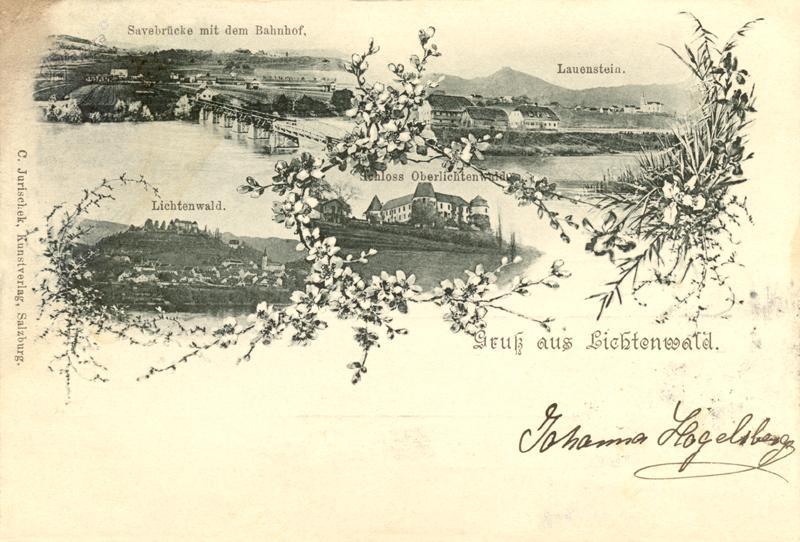 Savebrücke mit dem Bahnhof.
Lauenstein.
Schloss Oberlichtenwald.
Lichtenwald.
C. Jurischek, Kunstverlag, Salzburg.
Gruß aus Lichtenwald.
Johanna Hogelsberg